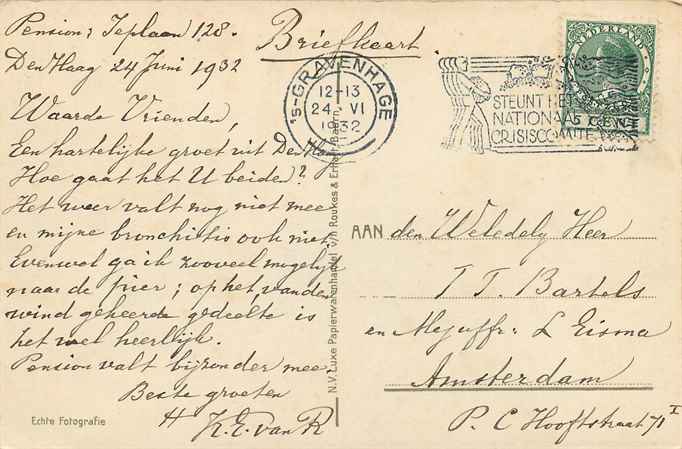 Pension: Ieplaan 128.
Den Haag 24 Juni 1932
Briefkaart
Waarde Vrienden,
Een hartelijke groet uit Den Haag
Hoe gaat het U beiden?
Het weer valt nog niet mee
en mijne bronchitis ook niet.
Evenwel ga ik zooveel mogelijk
naar de pier; op het van den
wind gekeerde gedeelte is
het wel heerlijk.
Pension valt bijzonder mee.
Beste groeten
K. E. van R
Echte Fotografie
N.V. Luxe Papierwarenhandel v/h Roukes & Erhart, Baarn
'S-GRAVENHAGE
12-13
24 VI
1932
STEUNT HET
NATIONAAL
CRISISCOMITE
NEDERLAND
5 CENT
AAN den Weledely Heer
T. T. Bartels
en Mejuffr: L Eisma
Amsterdam
P. C Hooftstraat 71 I